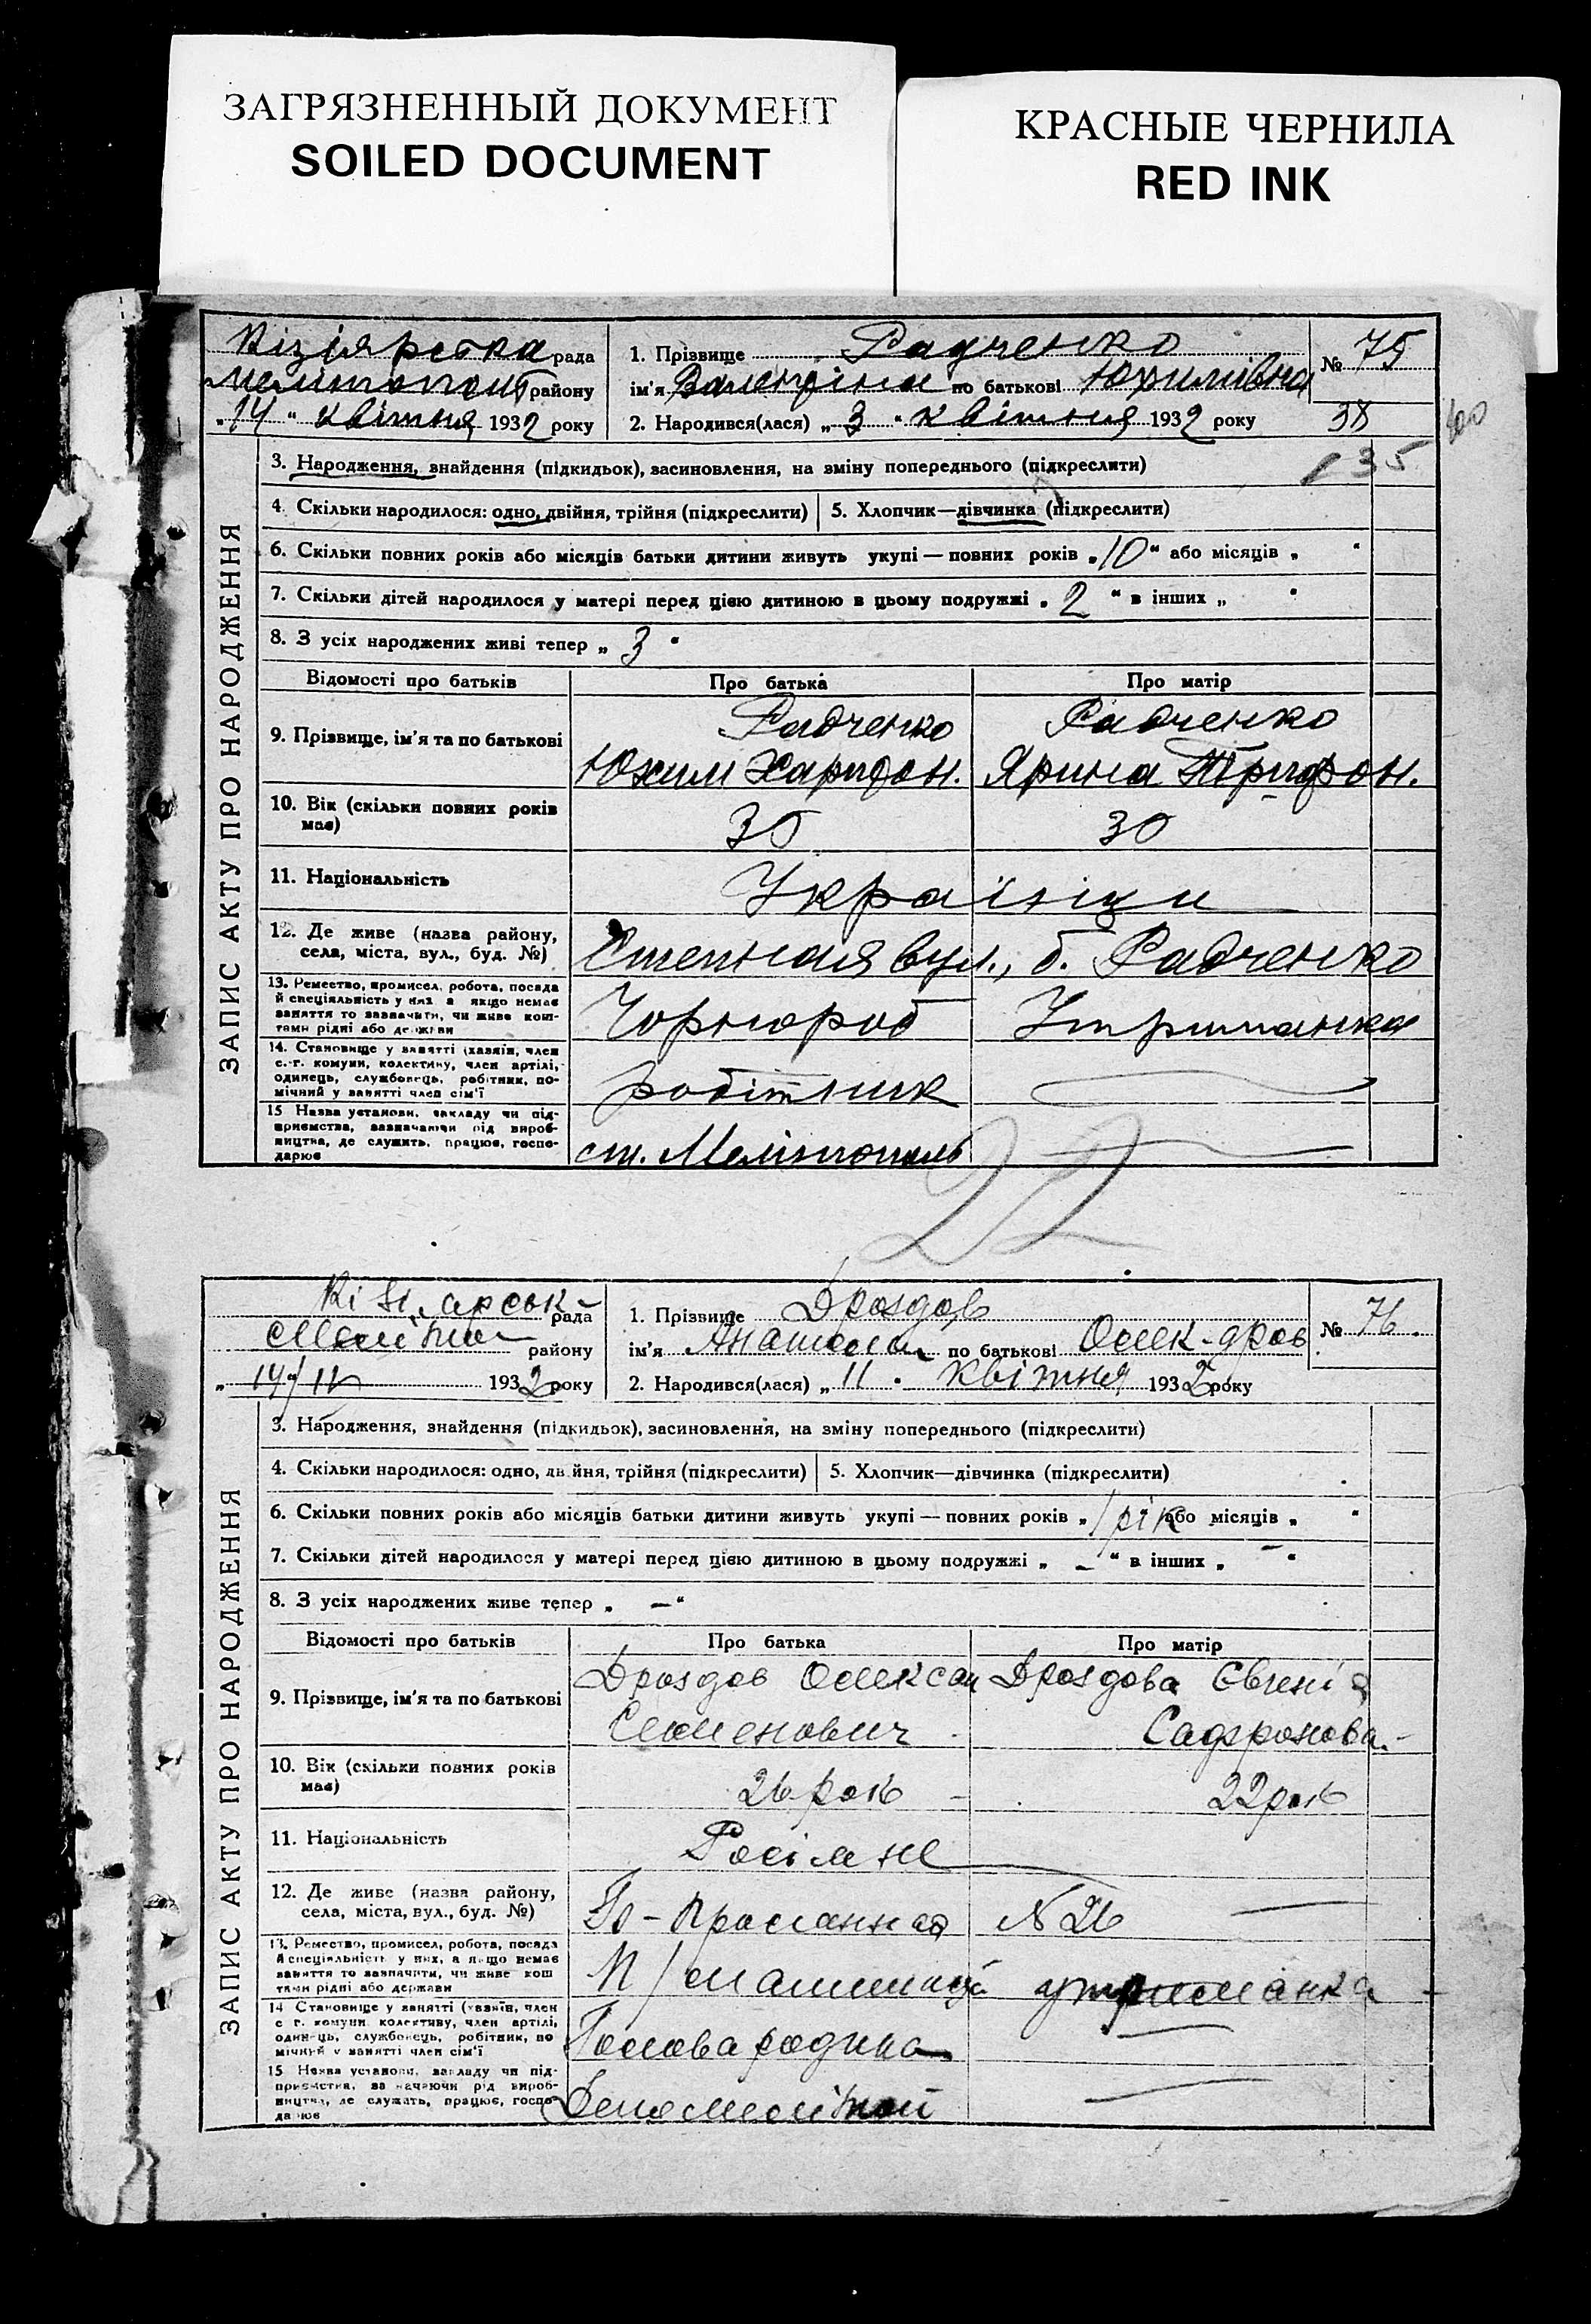 ЗАГРЯЗНЕННЫЙ ДОКУМЕНТ
SOILED DOCUMENT
КРАСНЫЕ ЧЕРНИЛА
RED INK
ЗАПИС АКТУ ПРО НАРОДЖЕННЯ
Кізіярська рада
Мелітопольс району
„14“ квітня 1932 року
1. Прізвище Радченко
ім'я Валентіна по батькові Юхимівна
2. Народився(лася) „3“ квітня 1932 року
№ 75
38
400
3. Народження, знайдення (підкидьок), засиновлення, на зміну попереднього (підкреслити)
35
4. Скільки народилося: одно, двійня, трійня (підкреслити) 5. Хлопчик—дівчинка (підкреслити)
6. Скільки повних років або місяців батьки дитини живуть укупі — повних років „10“ або місяців „ “
7. Скільки дітей народилося у матері перед цією дитиною в цьому подружжі „2“ в інших „ “
8. З усіх народжених живі тепер „3“
Відомості про батьків Про батька Про матір
9. Прізвище, ім'я та по батькові
Радченко Радченко
Юхим Харитон. Ярина Трифон.
10. Вік (скільки повних років має) 30 30
11. Національність Українци
12. Де живе (назва району, села, міста, вул., буд. №) Степная вул., б. Радченко
13. Ремество, промисел, робота, посада й спеціяльність у них а якщо немає заняття то зазначити, чи живе коштами рідні або держави
Чорнороб Утриманка
14. Становище у занятті (хазяїн, член с.-г. комуни, колективу, член артілі, одинець, службовець, робітник, помічний у занятті член сім'ї
робітник
15 Назва установи, закладу чи підприємства, зазначаючи рід виробництва, де служить, працює, господарює
ст. Мелітополь
22
ЗАПИС АКТУ ПРО НАРОДЖЕННЯ
рада
району
14/IV 1932 року
1. Прізвище Дроздов
ім'я по батькові Олек-дров
2. Народився(лася) „11“ Квітня 1932 року
№ 76.
3. Народження, знайдення (підкидьок), засиновлення, на зміну попереднього (підкреслити)
4. Скільки народилося: одно, двійня, трійня (підкреслити) 5. Хлопчик—дівчинка (підкреслити)
6. Скільки повних років або місяців батьки дитини живуть укупі — повних років „1 рік або місяців „ “
7. Скільки дітей народилося у матері перед цією дитиною в цьому подружжі „ – “ в інших „ – “
8. З усіх народжених живе тепер „ – “
Відомості про батьків Про батька Про матір
9. Прізвище, ім'я та по батькові
Дроздов Олексан Дроздова Євгенія
Семенович Сафронова.
10. Вік (скільки повних років має) 26 рок 22 рок
11. Національність Росіяне
12. Де живе (назва району, села, міста, вул., буд. №) №26
13. Ремество, промисел, робота, посада й спеціяльність у них, а якщо немає заняття то зазначити, чи живе коштами рідні або держави
утриманка
14 Становище у занятті (хазяїн, член с г. комуни колективу, член артілі, одинець, службовець, робітник, помічний у занятті член сім'ї
Голова родина
15 Назва установи, закладу чи підприємства, зазначаючи рід виробництва, де служить, працює, господарює